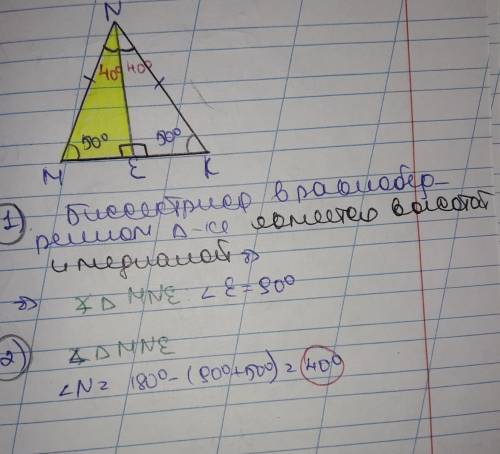 N
40° 40°
50° 50°
M E K
1) Биссектриса в равнобед-
ренном Δ-ке является высотой
и медианой ⇒
⇒ ∡ Δ MNE: ∠E = 90°
2) ∡ Δ MNE
∠N = 180° - (90° + 50°) = 40°